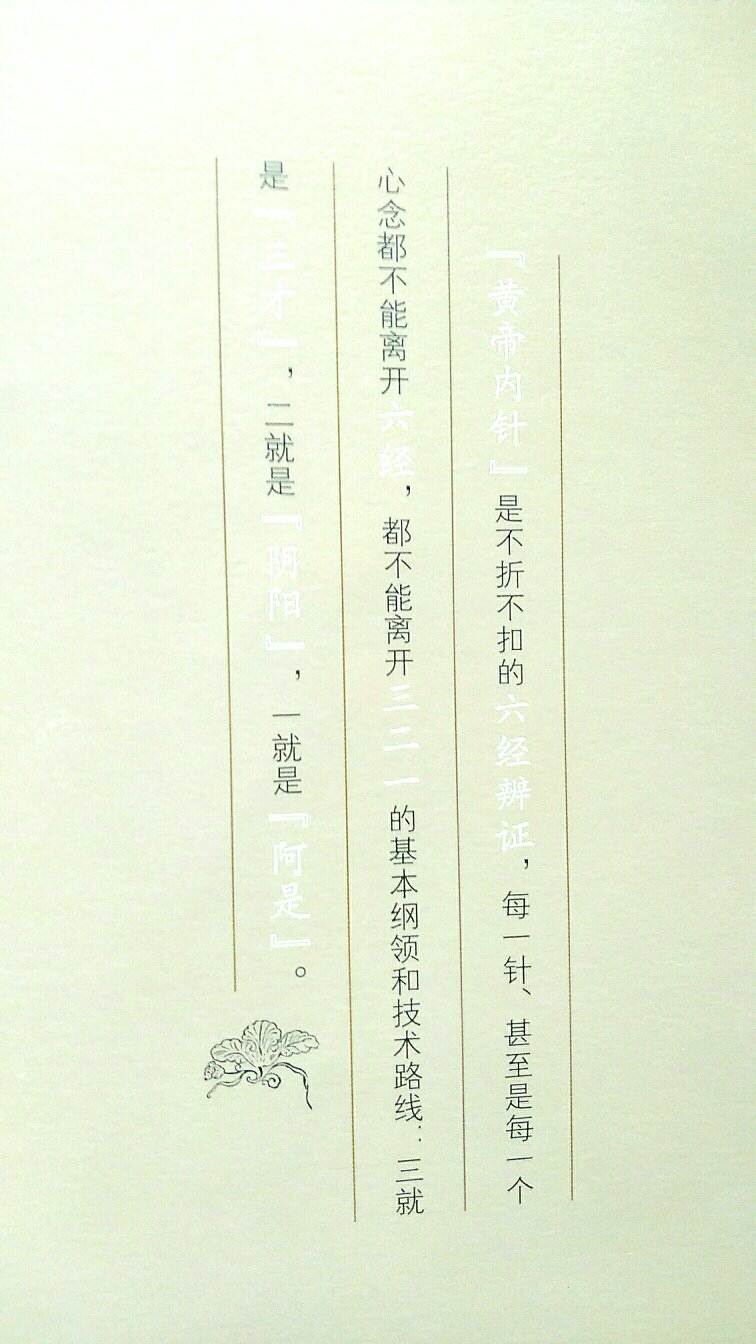 『黄帝内针』是不折不扣的六经辨证，每一针、甚至是每一个
心念都不能离开六经，都不能离开三二一的基本纲领和技术路线：三就
是『三才』，二就是『阴阳』，一就是『阿是』。